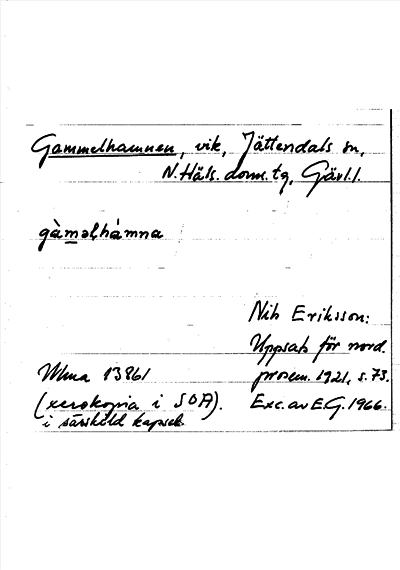 Gammelhamnen, vik, Jättendals sn,
N. Häls. doms. tg, Gävl. l.
gàmǝḷhámna
Nils Eriksson:
Uppsats för nord.
prosem. 1921, s. 73.
Ulma 13861
(xerokopia i SOA).
i särskild kapsel.
Exc. av E.G. 1966.